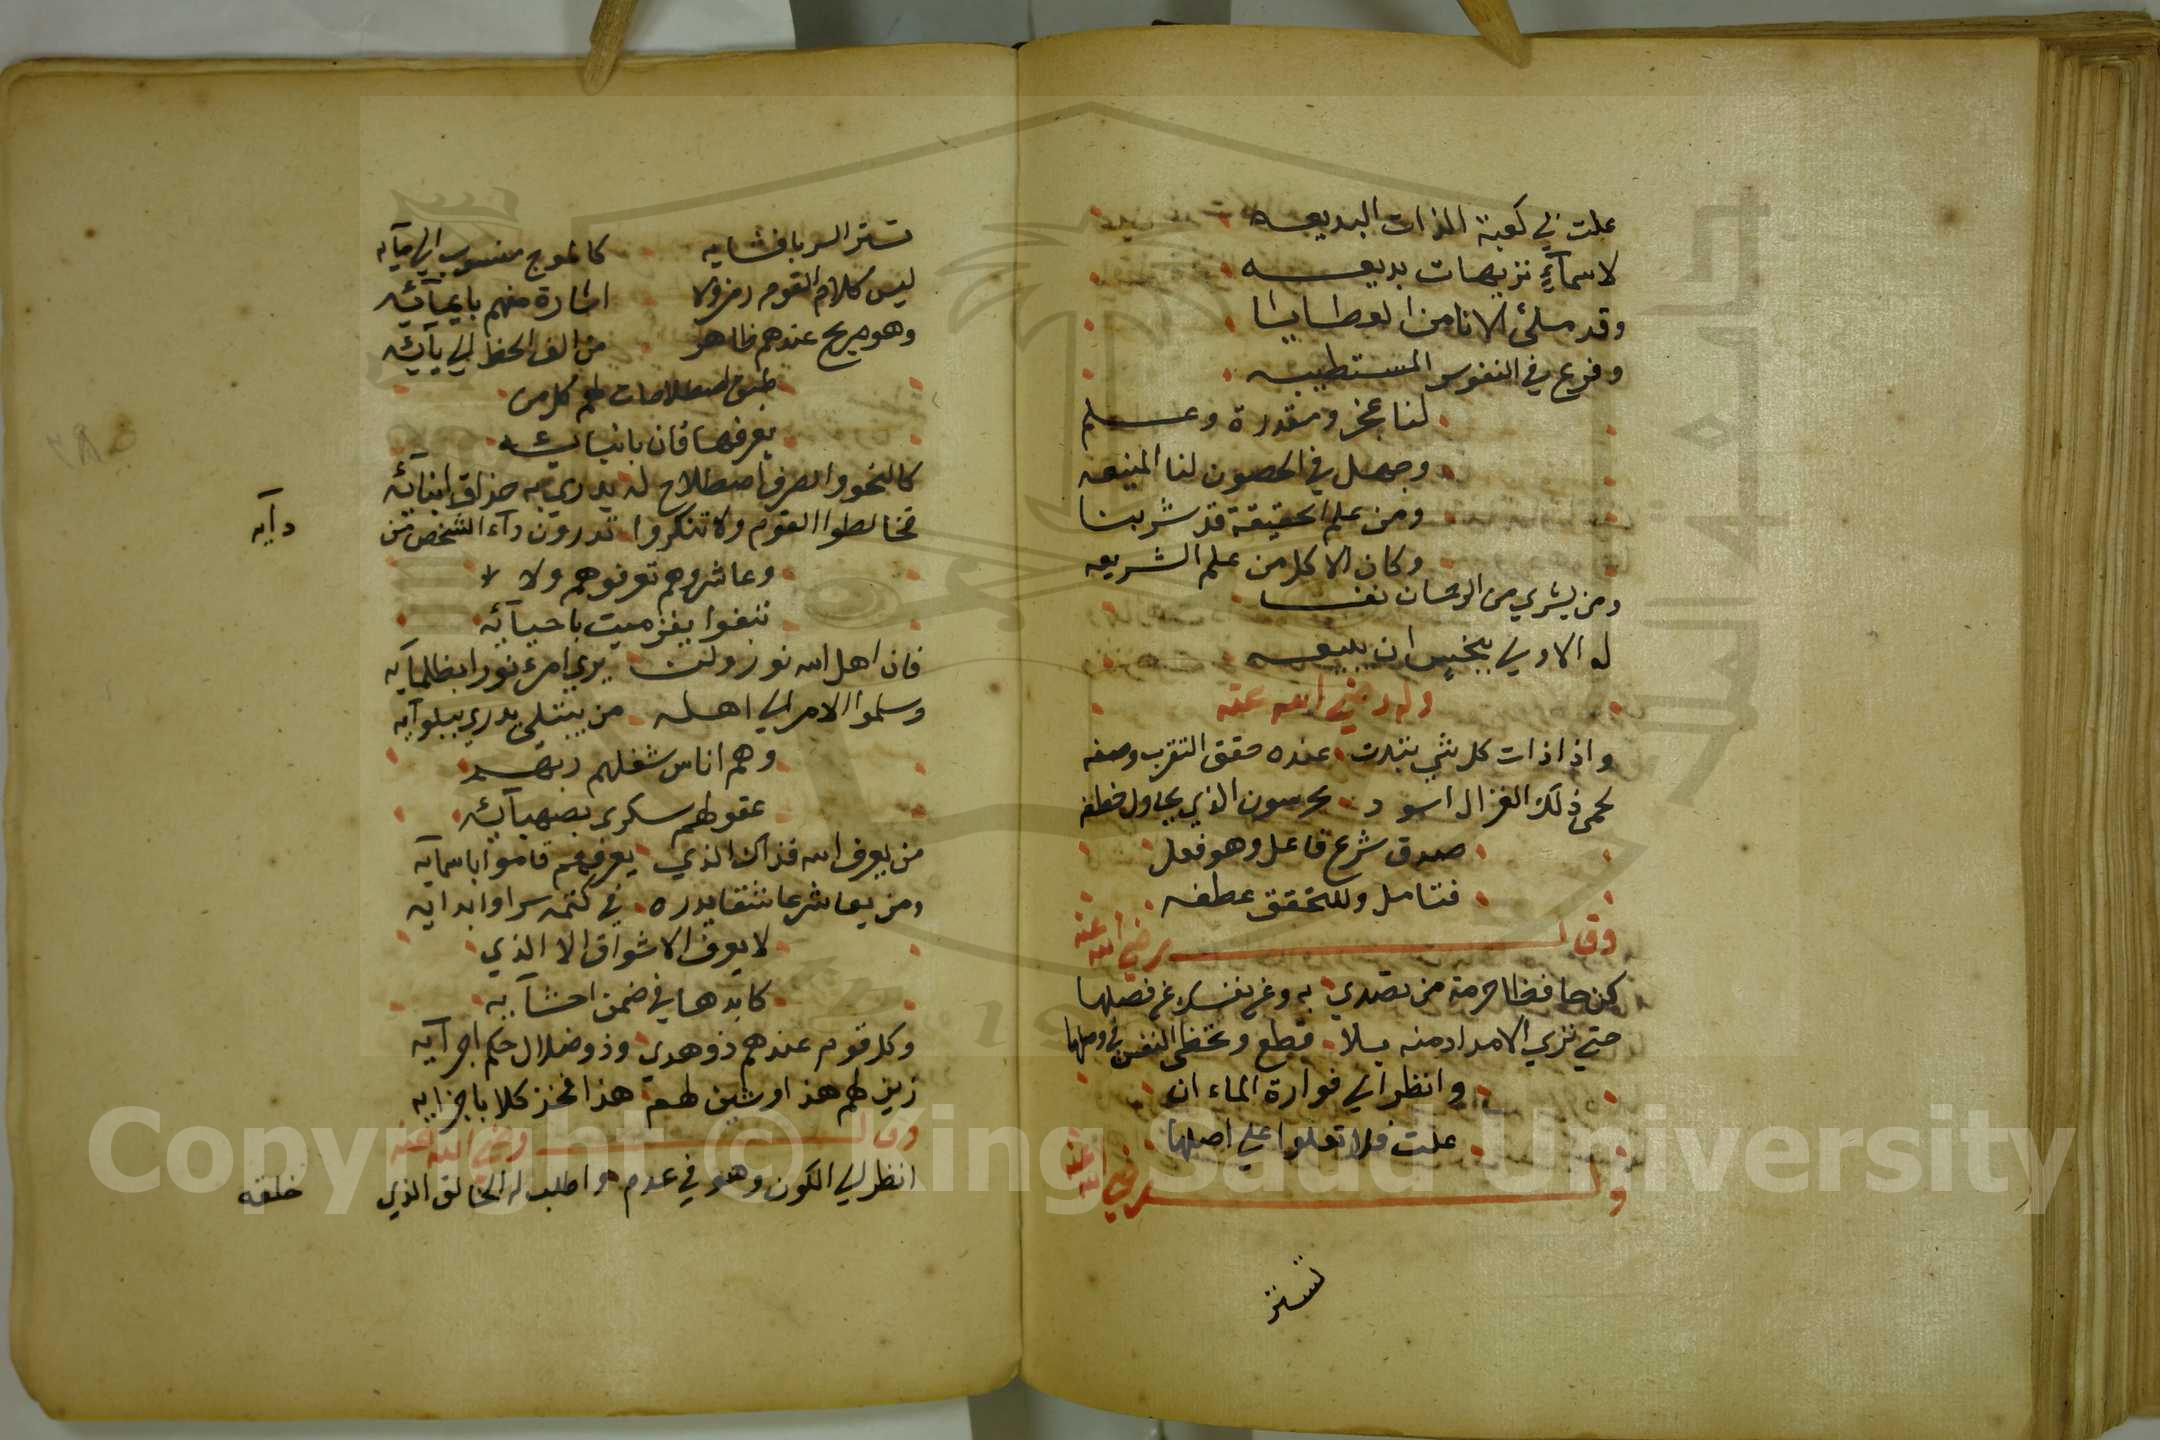 علت في كعبة الذات البديعه
لاسماء نزيهات بديعه
وقد ملئ الانا من العطايا
وفرع في النفوس المستطيبه
لنا عجز ومقدرة وعلم
وجهل في الحصون لنا المنيعه
ومن علم الحقيقة قد شربنا
وكان الاكل من علم الشريعه
ومن يشري من الرحمان نفسا
له الاولى ببخس ان يبيعه
وله رضي الله عنه
واذا ذات كل شي تبدت عنده حقق التقرب وصفه
لحمى ذلك الغزال اسود يحرسون الذي يحاول خطفه
صدق شرع فاعل وهو فعل
فتامل وللتحقق عطفه
وقال رضي الله عنه
كن حافظا حرمة من تهتدي به وعن نفسك عن فصلها
حتي تري الامداد منه بلا قطع وتحظى النفس في وصلها
وانظر الى فوارة الماء ان
علت فلا تعلوا علي اصلها
وله رضي الله عنه
تستر
تستر السر بافشايه كالموج منسوب الى مآيه
ليس كلام القوم رمز ولا اشارة منهم بايمآئه
وهو صريح عندهم ظاهر من الف الخط الي يآئه
طبق اصطلاحات لهم كل من
يعرفها فان بانيائه
كالنحو والصرف اصطلاح له يدري به حذاق ابنآئه
تخالطوا القوم ولا تنكروا تدرون دآء الشخص من
دآيه
وعاشروهم تعرفوهم ولا
تبغوا يفز ميت باحيآئه
فان اهل الله نور ولن يري امرء نورا بظلمآيه
وسلموا الامر الى اهله من يبتلى يدري ببلوآيه
وهم اناس شغلهم ربهم
عقولهم سكرى بصهبآئه
من يعرف الله فذاك الذي يعرفهم قاموا باسمآيه
ومن يعاشر عاشقا يدره في كتمه سرا وابدايه
لا يعرف الاشواق الا الذي
كابدها في ضمن احشآيه
وكل قوم عندهم ذو هدي وذو ضلال حكم اجرآيه
زين لهم هذا وشين لهم هذا فخذ كلا باجزايه
وقال رضي الله عنه
انظر الي الكون وهو في عدم واطلب له الخالق الذي
خلقه
Copyright © King Saud University